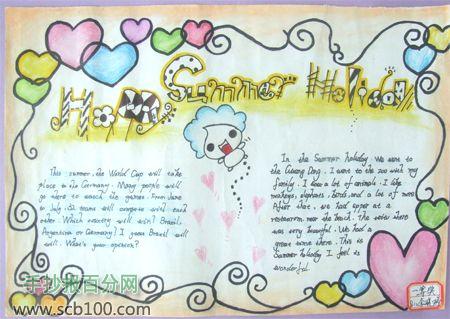 Happy Summer Holiday
This summer, the World Cup will take
place in the Germany. Many people will
go there to watch the games. From June
to July, 32 teams will compete with each
other. Which country will win? Brazil,
Argentina or Germany? I guess Brazil
will. What's your opinion?
In the Summer holiday. We went to
the Qiang Dong. I went to the zoo with my
family. I have a lot of animals. I like
monkeys, elephants, Birds, and a lot of more.
After that, we had super at a
restaurant near the beach. The view there
was very beautiful. We had a
great time there. This is
Summer holiday. I feel is
wonderful.
手抄报百分网
www.scb100.com
一等奖